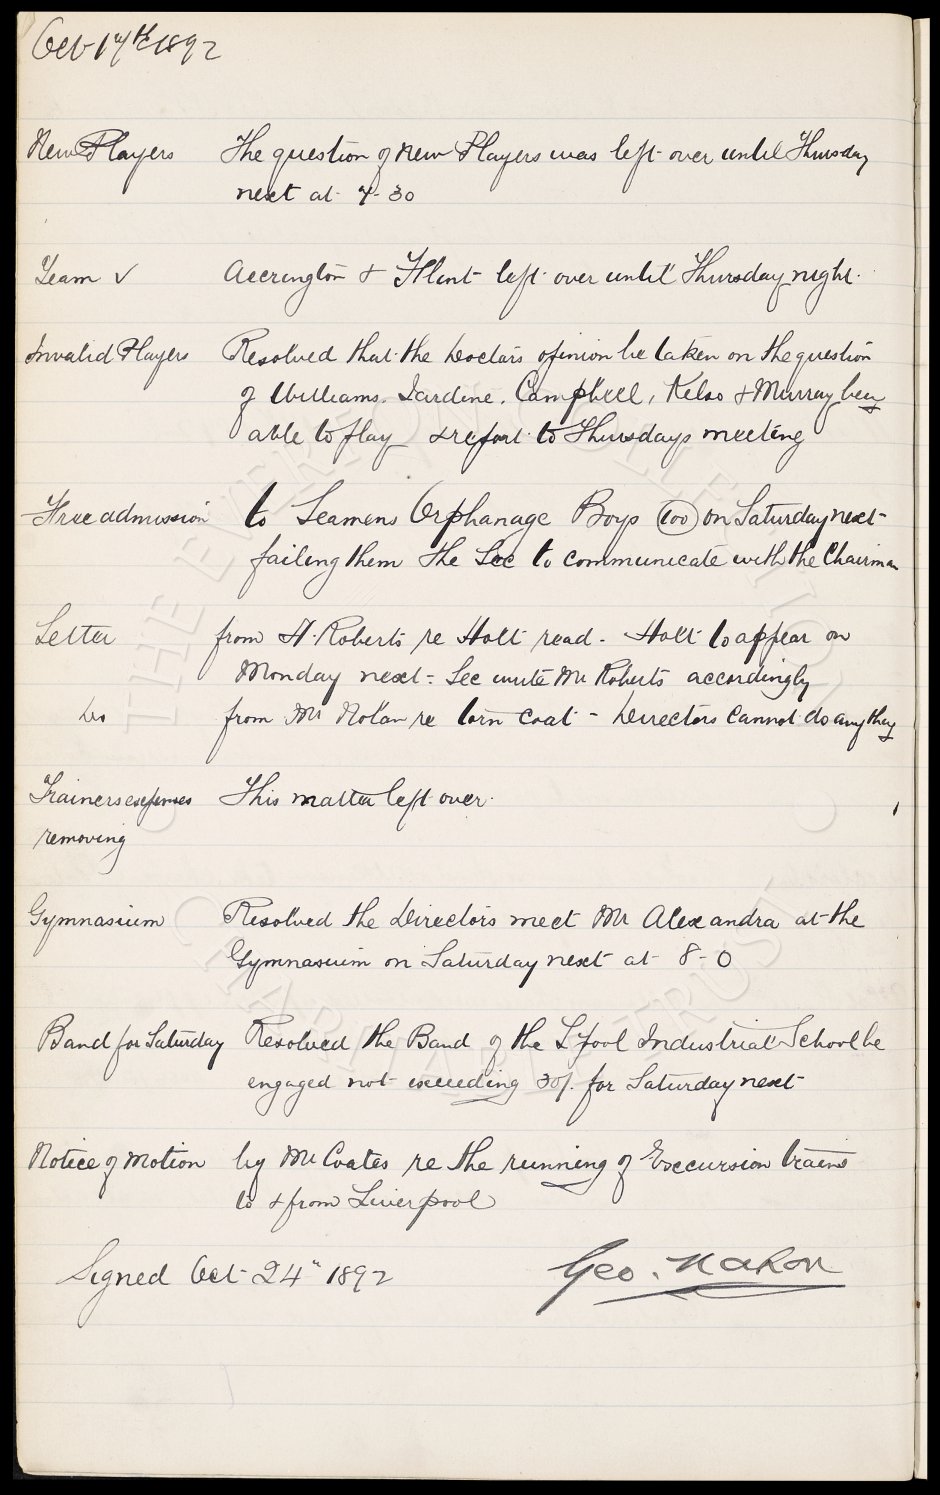 Oct 17th 1892
New Players The question of New Players was left over until Thursday
next at 7-30
Team v Accrington & Flint left over until Thursday night.
Invalid Players Resolved that the Doctors opinion be taken on the question
of Williams. Jardine. Campbell, Kelso & Murray being
able to play & report to Thursdays meeting
Free admission to Seamens Orphanage Boys (100) on Saturday next
failing them the Sec to communicate with the Chairman
Letter from H. Roberts re Holt read - Holt to appear on
Monday next - Sec write Mr Roberts accordingly
Do from Mr Nolan re torn coat - Directors cannot do anything
Trainers expenses This matter left over.
removing
Gymnasium Resolved the Directors meet Mr Alexandra at the
Gymnasium on Saturday next at 8-0
Band for Saturday Resolved the Band of the L'pool Industrial School be
engaged not exceeding 30/. for Saturday next
Notice of Motion by Mr Coates re the running of Excursion trains
to & from Liverpool
Signed Oct 24" 1892 Geo. Mahon
THE EVERTON COLLECTION
CHARITABLE TRUST